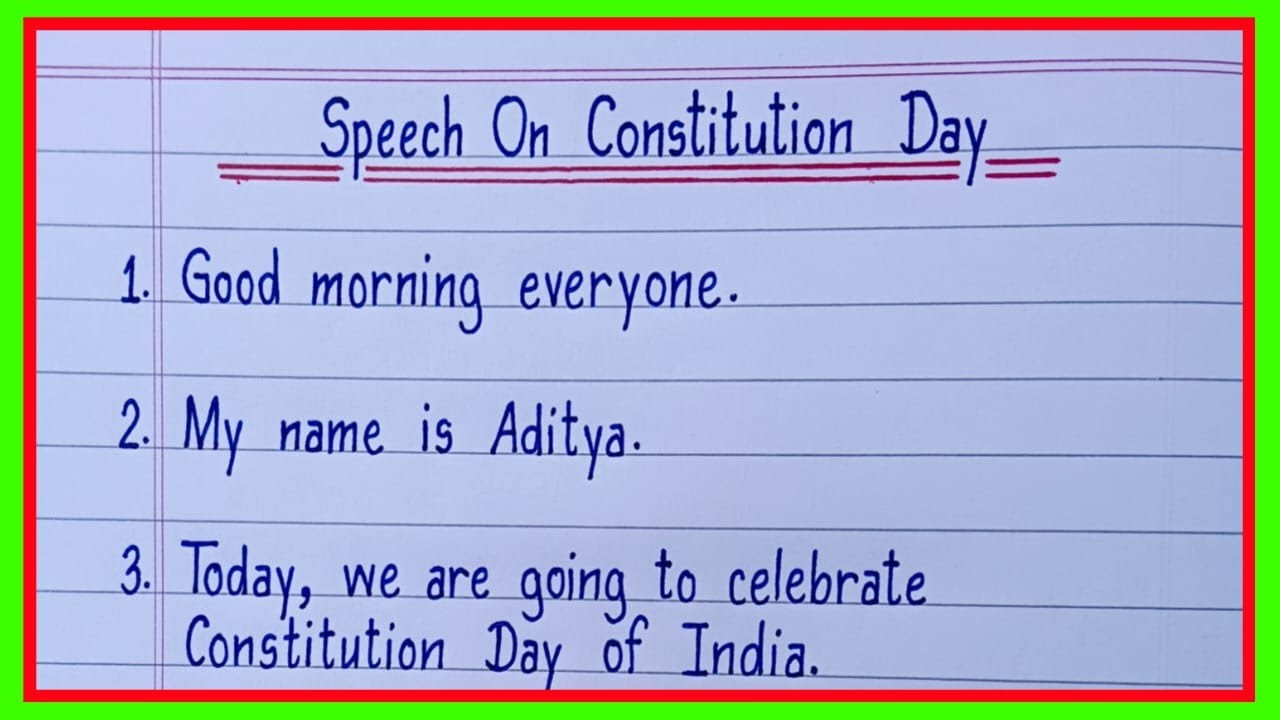 Speech On Constitution Day
1. Good morning everyone.
2. My name is Aditya.
3. Today, we are going to celebrate
Constitution Day of India.